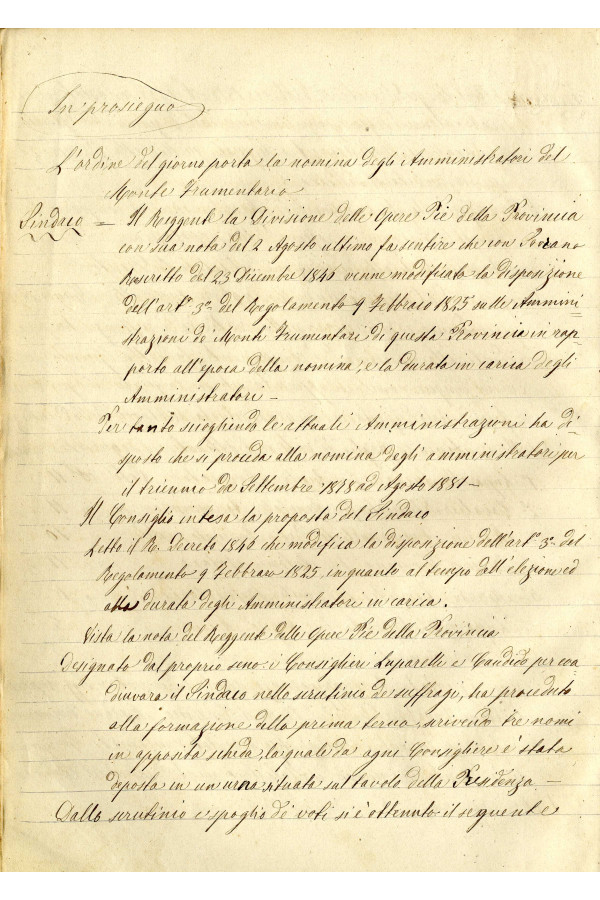 In prosieguo
L'ordine del giorno porta la nomina degli Amministratori del
Monte Frumentario
Sindaco = Il Reggente la Divisione delle Opere Pie della Provincia
con sua nota del 2 Agosto ultimo fa sentire che con Sovrano
Rescritto del 23 Dicembre 1846 venne modificata la disposizione
dell'art.º 3º del Regolamento 9 Febbraio 1825 sulle Ammini
istrazioni de' Monti Frumentari di questa Provincia in rap-
porto all'epoca della nomina, e la durata in carica degli
Amministratori –
Per tanto sciogliendo le attuali Amministrazioni ha di-
sposto che si proceda alla nomina degli amministratori per
il triennio da Settembre 1878 ad Agosto 1881 –
Il Consiglio intesa la proposta del Sindaco
Letto il R. Decreto 1846 che modifica la disposizione dell'art.º 3º del
Regolamento 9 Febbraro 1825, in quanto al tempo dell'elezione ed
alla durata degli Amministratori in carica.
Vista la nota del Reggente delle Opere Pie della Provincia
Designato dal proprio seno i Consiglieri Luparelli e Candido per coa
diuvare il Sindaco nello scrutinio de' suffragi, ha proceduto
alla formazione della prima terna, scrivendo tre nomi
in apposita scheda, la quale da ogni Consigliere è stata
deposta in un urna situata sul tavolo della Presidenza –
Dallo scrutinio e spoglio de' voti si è ottenuto il seguente